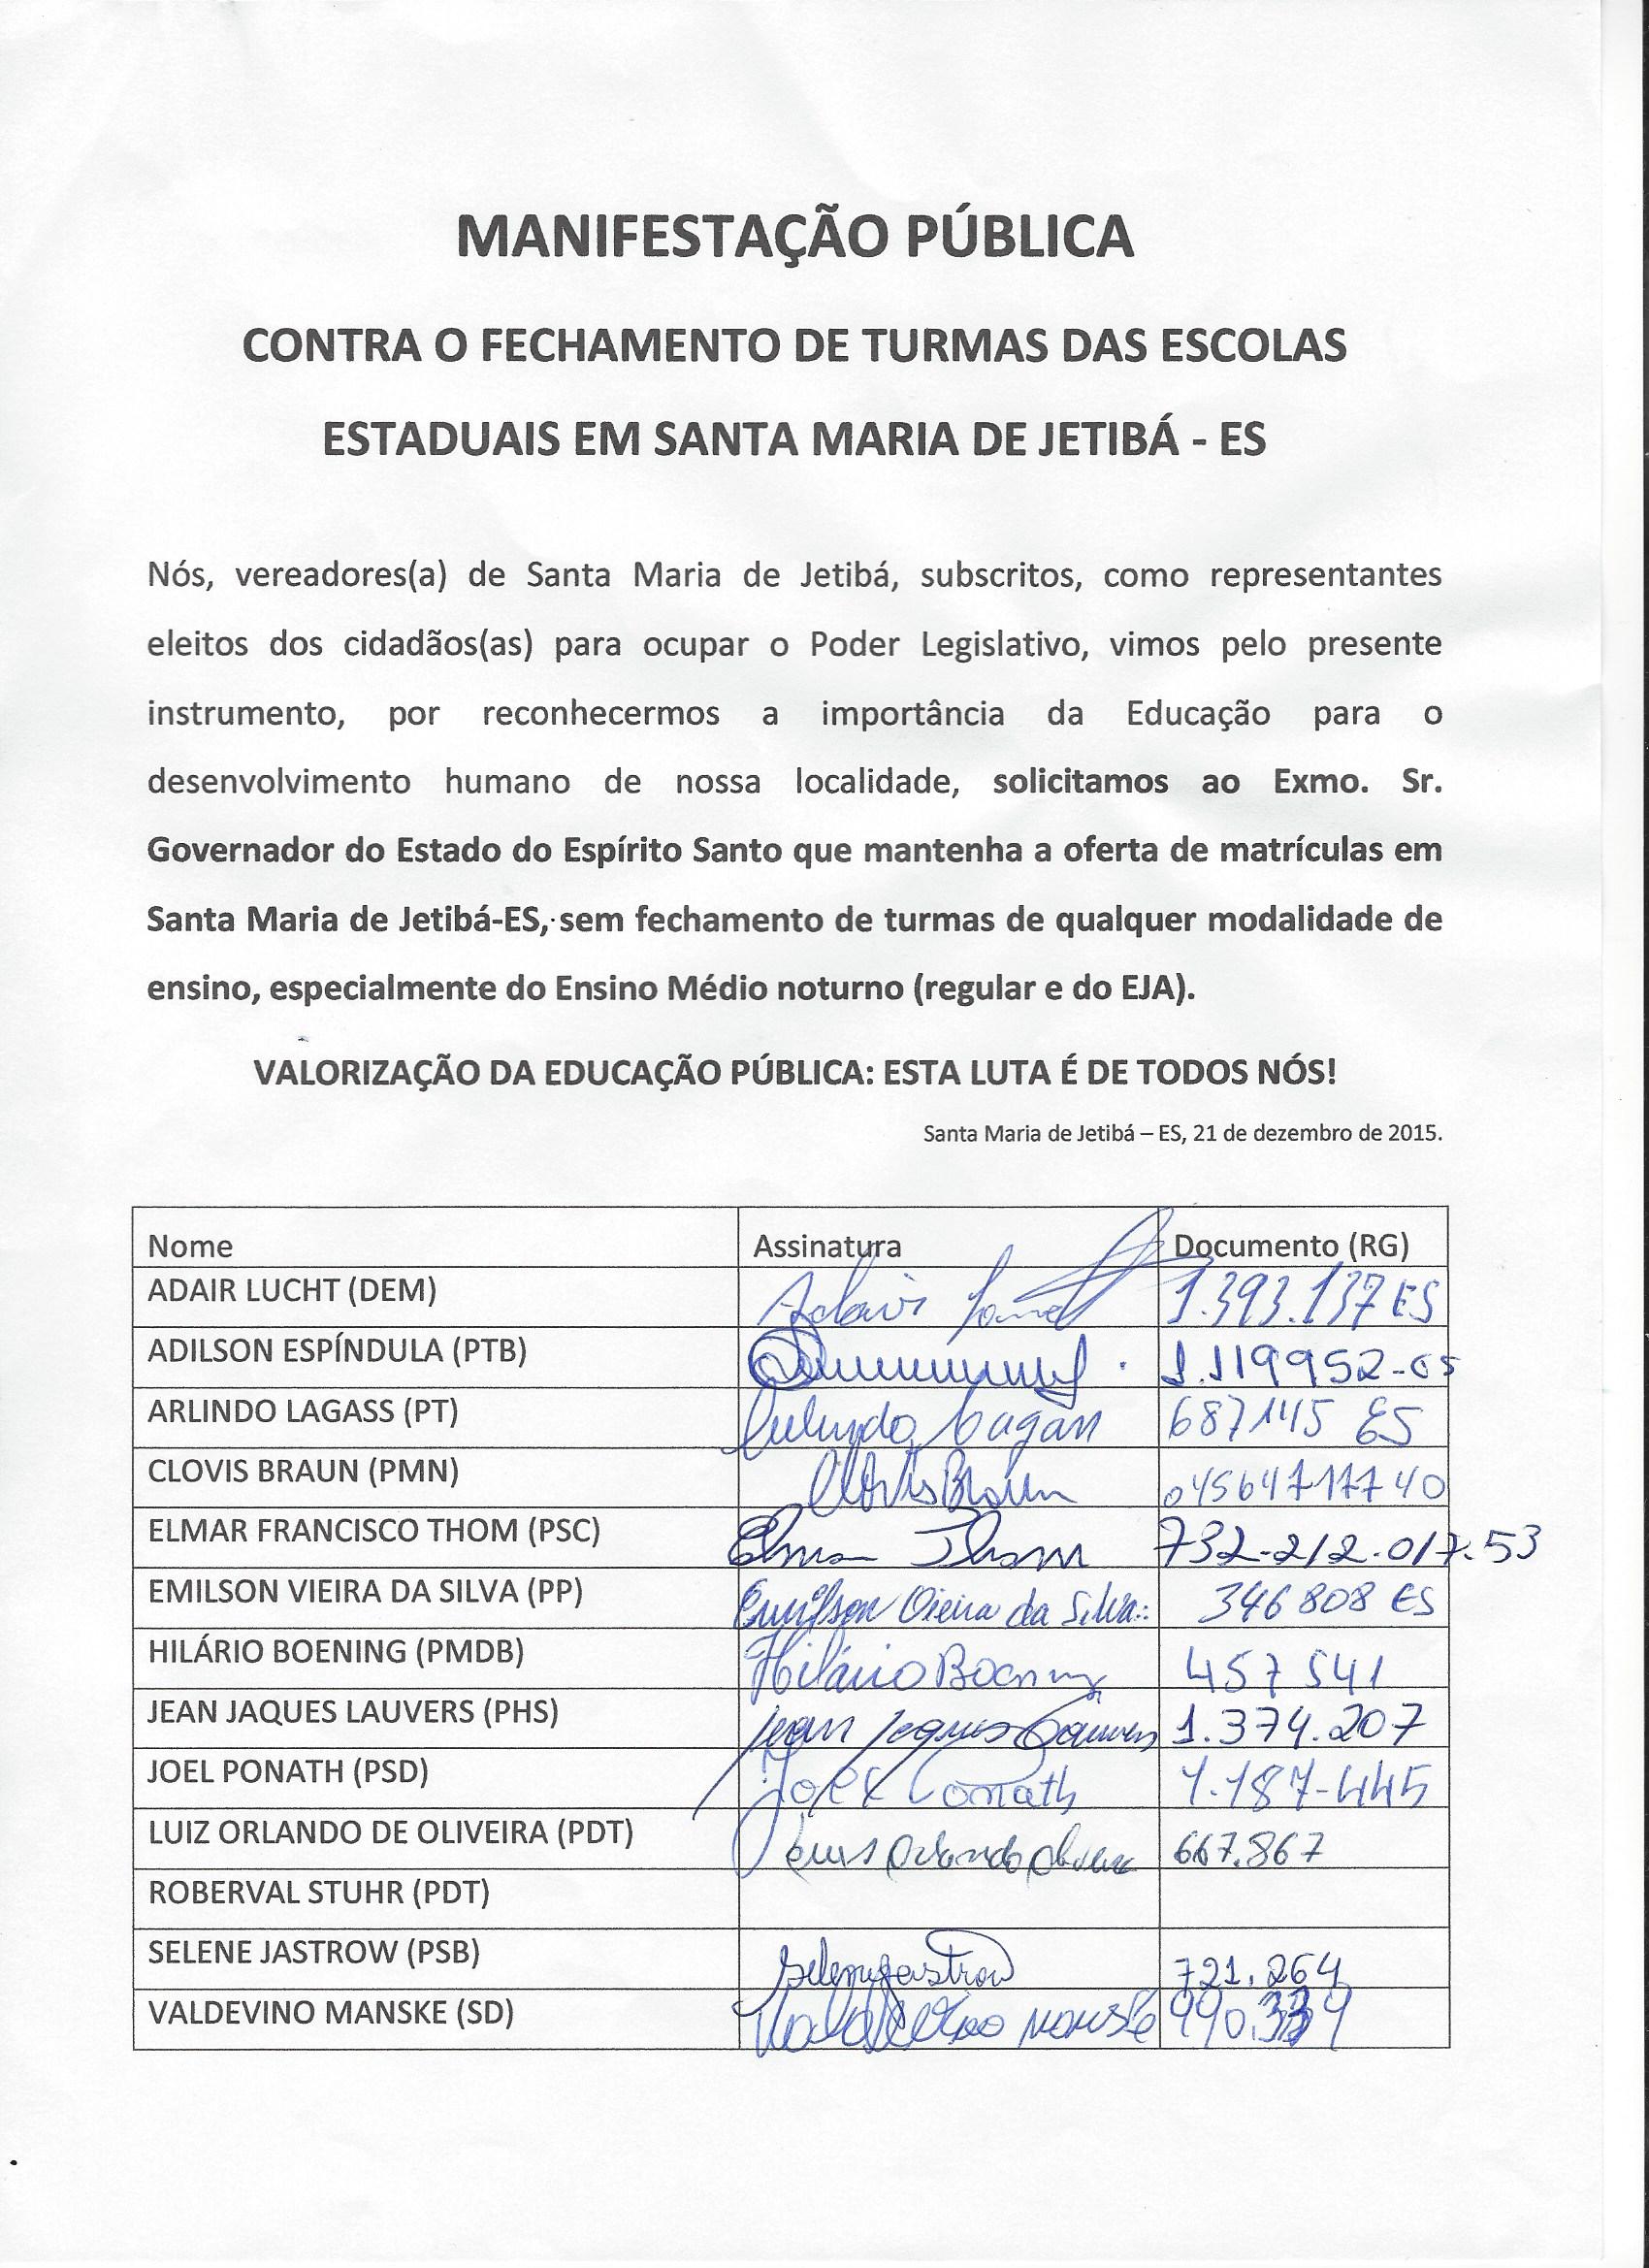 MANIFESTAÇÃO PÚBLICA
CONTRA O FECHAMENTO DE TURMAS DAS ESCOLAS
ESTADUAIS EM SANTA MARIA DE JETIBÁ - ES
Nós, vereadores(a) de Santa Maria de Jetibá, subscritos, como representantes
eleitos dos cidadãos(as) para ocupar o Poder Legislativo, vimos pelo presente
instrumento, por reconhecermos a importância da Educação para o
desenvolvimento humano de nossa localidade, solicitamos ao Exmo. Sr.
Governador do Estado do Espírito Santo que mantenha a oferta de matrículas em
Santa Maria de Jetibá-ES, sem fechamento de turmas de qualquer modalidade de
ensino, especialmente do Ensino Médio noturno (regular e do EJA).
VALORIZAÇÃO DA EDUCAÇÃO PÚBLICA: ESTA LUTA É DE TODOS NÓS!
Santa Maria de Jetibá – ES, 21 de dezembro de 2015.
Nome Assinatura Documento (RG)
ADAIR LUCHT (DEM) Adair 1.393.137 ES
ADILSON ESPÍNDULA (PTB) 1.119952-
ARLINDO LAGASS (PT) 687145 ES
CLOVIS BRAUN (PMN) Clovis Braun
ELMAR FRANCISCO THOM (PSC) Elmar Thom 732.212.017.53
EMILSON VIEIRA DA SILVA (PP) Emilson Vieira da Silva 346808 ES
HILÁRIO BOENING (PMDB) Hilário Boening 457541
JEAN JAQUES LAUVERS (PHS) Jean Jaques Lauvers 1.374.207
JOEL PONATH (PSD) Joel Ponath 1.187-445
LUIZ ORLANDO DE OLIVEIRA (PDT) Luis Orlando 667.867
ROBERVAL STUHR (PDT)
SELENE JASTROW (PSB) Selene Jastrow 721.264
VALDEVINO MANSKE (SD) Valdevino Manske